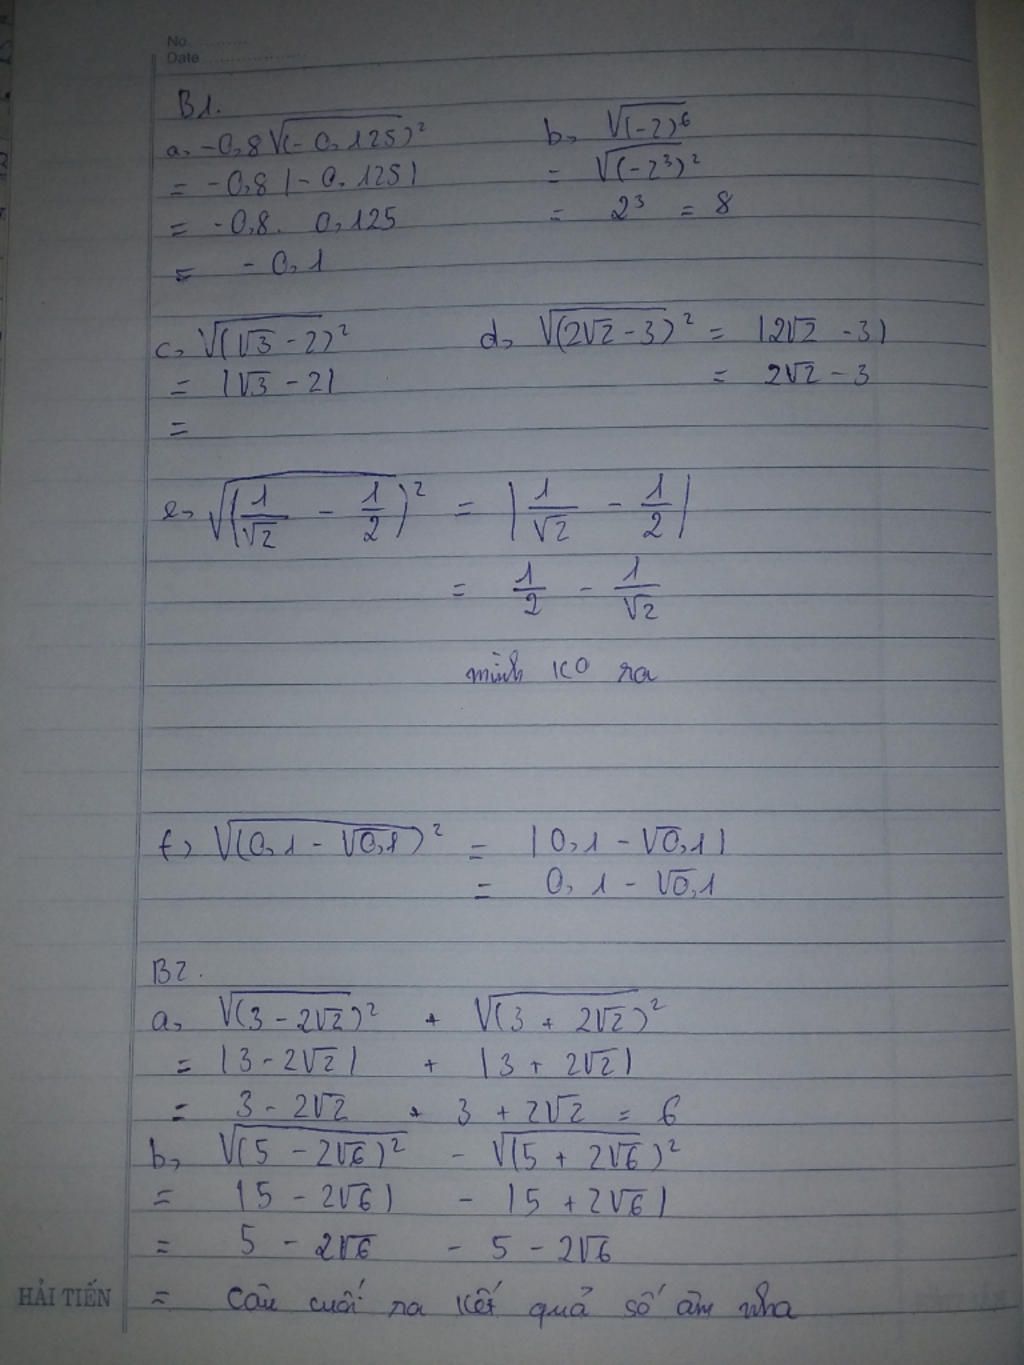 No
Date
B1.
a, -0,8√(-0,125)²
= -0,8 |-0,125|
= -0,8. 0,125
= -0,1
b, √(-2)⁶
= √(-2³)²
= 2³ = 8
c, √(√3 - 2)²
= |√3 - 2|
=
d, √(2√2 - 3)² = |2√2 - 3|
= 2√2 - 3
e, √(1/√2 - 1/2)² = |1/√2 - 1/2|
= 1/2 - 1/√2
mình ko ra
f, √(0,1 - √0,1)² = |0,1 - √0,1|
= 0,1 - √0,1
B2.
a, √(3 - 2√2)² + √(3 + 2√2)²
= |3 - 2√2| + |3 + 2√2|
= 3 - 2√2 + 3 + 2√2 = 6
b, √(5 - 2√6)² - √(5 + 2√6)²
= |5 - 2√6| - |5 + 2√6|
= 5 - 2√6 - 5 - 2√6
= Câu cuối ra kết quả số âm nha
HẢI TIẾN